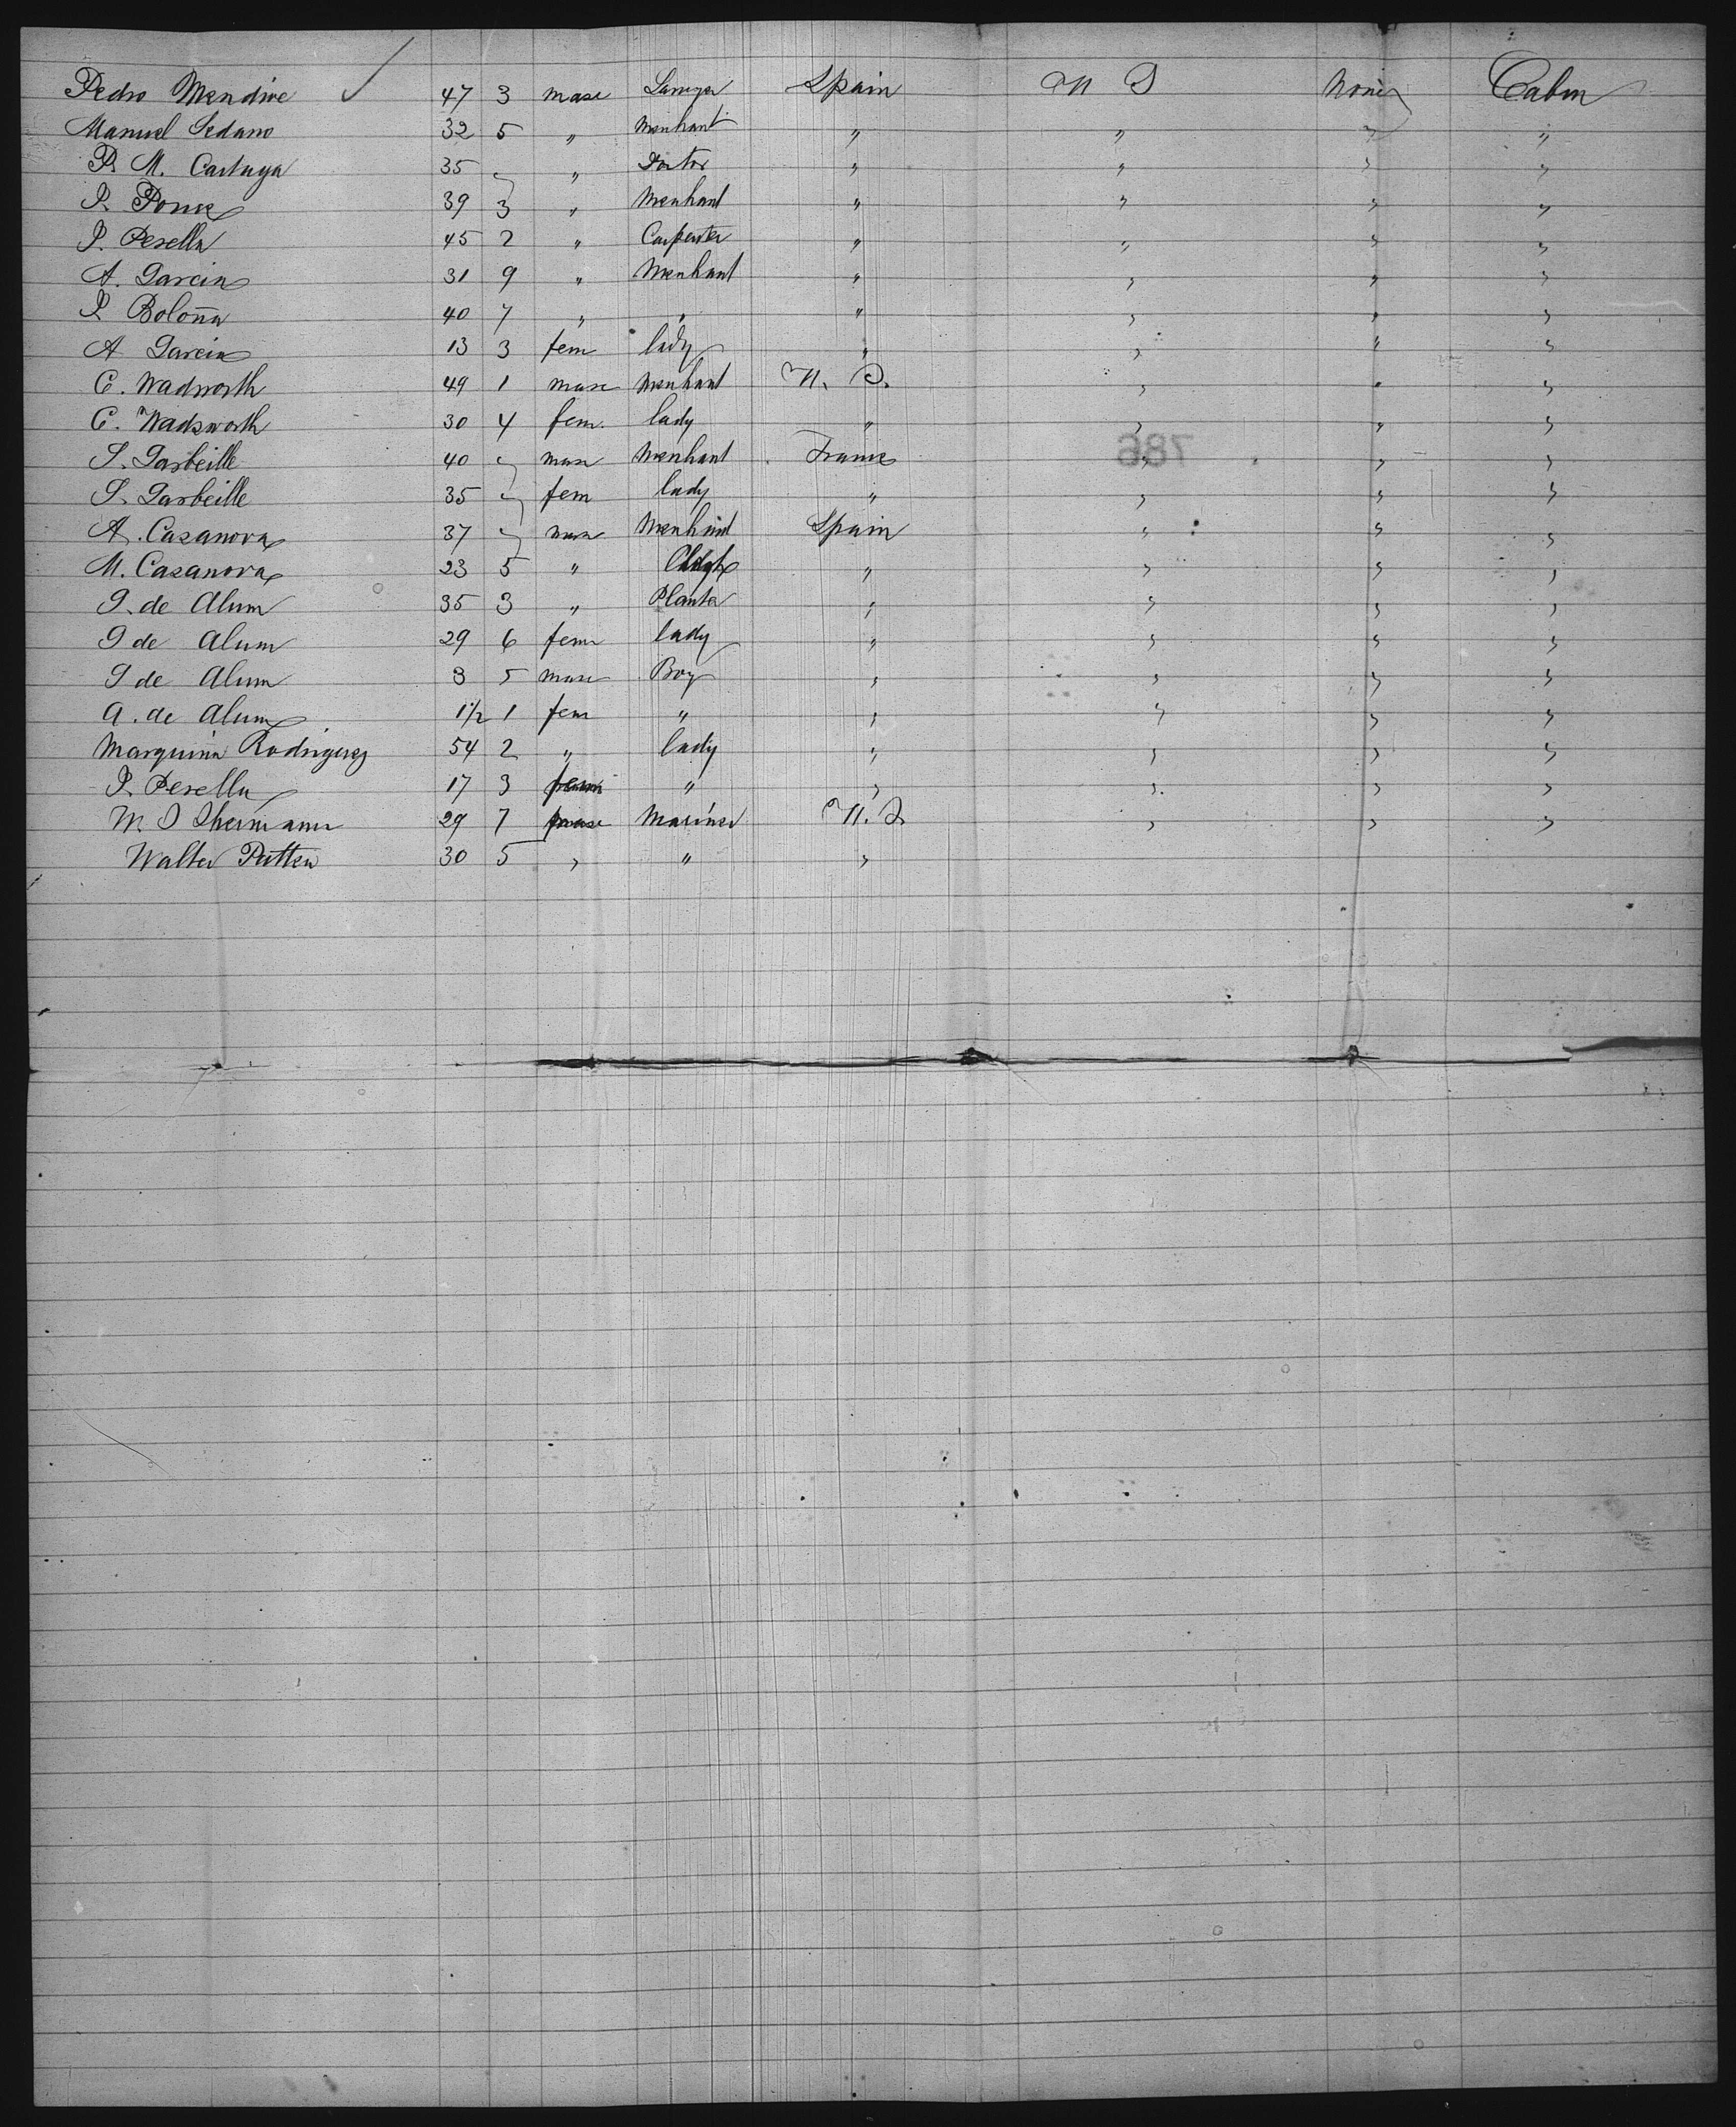 Pedro Mendive 47 3 masc Lawyer Spain U S None Cabin
Manuel Sedano 32 5 " Merchant " " " "
P. M. Cartaya 35 " " Doctor " " " "
P. Ponce 39 3 " Merchant " " " "
P. Perella 45 2 " Carpenter " " " "
A. Garcia 31 9 " Merchant " " " "
P. Boloña 40 7 " " " " " "
A Garcia 13 3 fem lady " " " "
C. Wadworth 49 1 masc Merchant U. S. " " "
C. Wadsworth 30 4 fem. lady " " " "
S. Garbeille 40 " masc Merchant France " " "
S. Garbeille 35 " fem lady " " " "
A. Casanova 37 " masc Merchant Spain " " "
M. Casanova 23 5 " " " " "
G. de Alum 35 3 " Planter " " " "
G de Alum 29 6 fem lady " " " "
G de Alum 3 5 masc Boy " " " "
A. de Alum 1½ 1 fem " " " " "
Marquina Rodriguez 54 2 " lady " " " "
P. Perella 17 3 " " " " "
W. S Shermann 29 7 masc Mariner U. S. " " "
Walter Patten 30 5 " " "
786